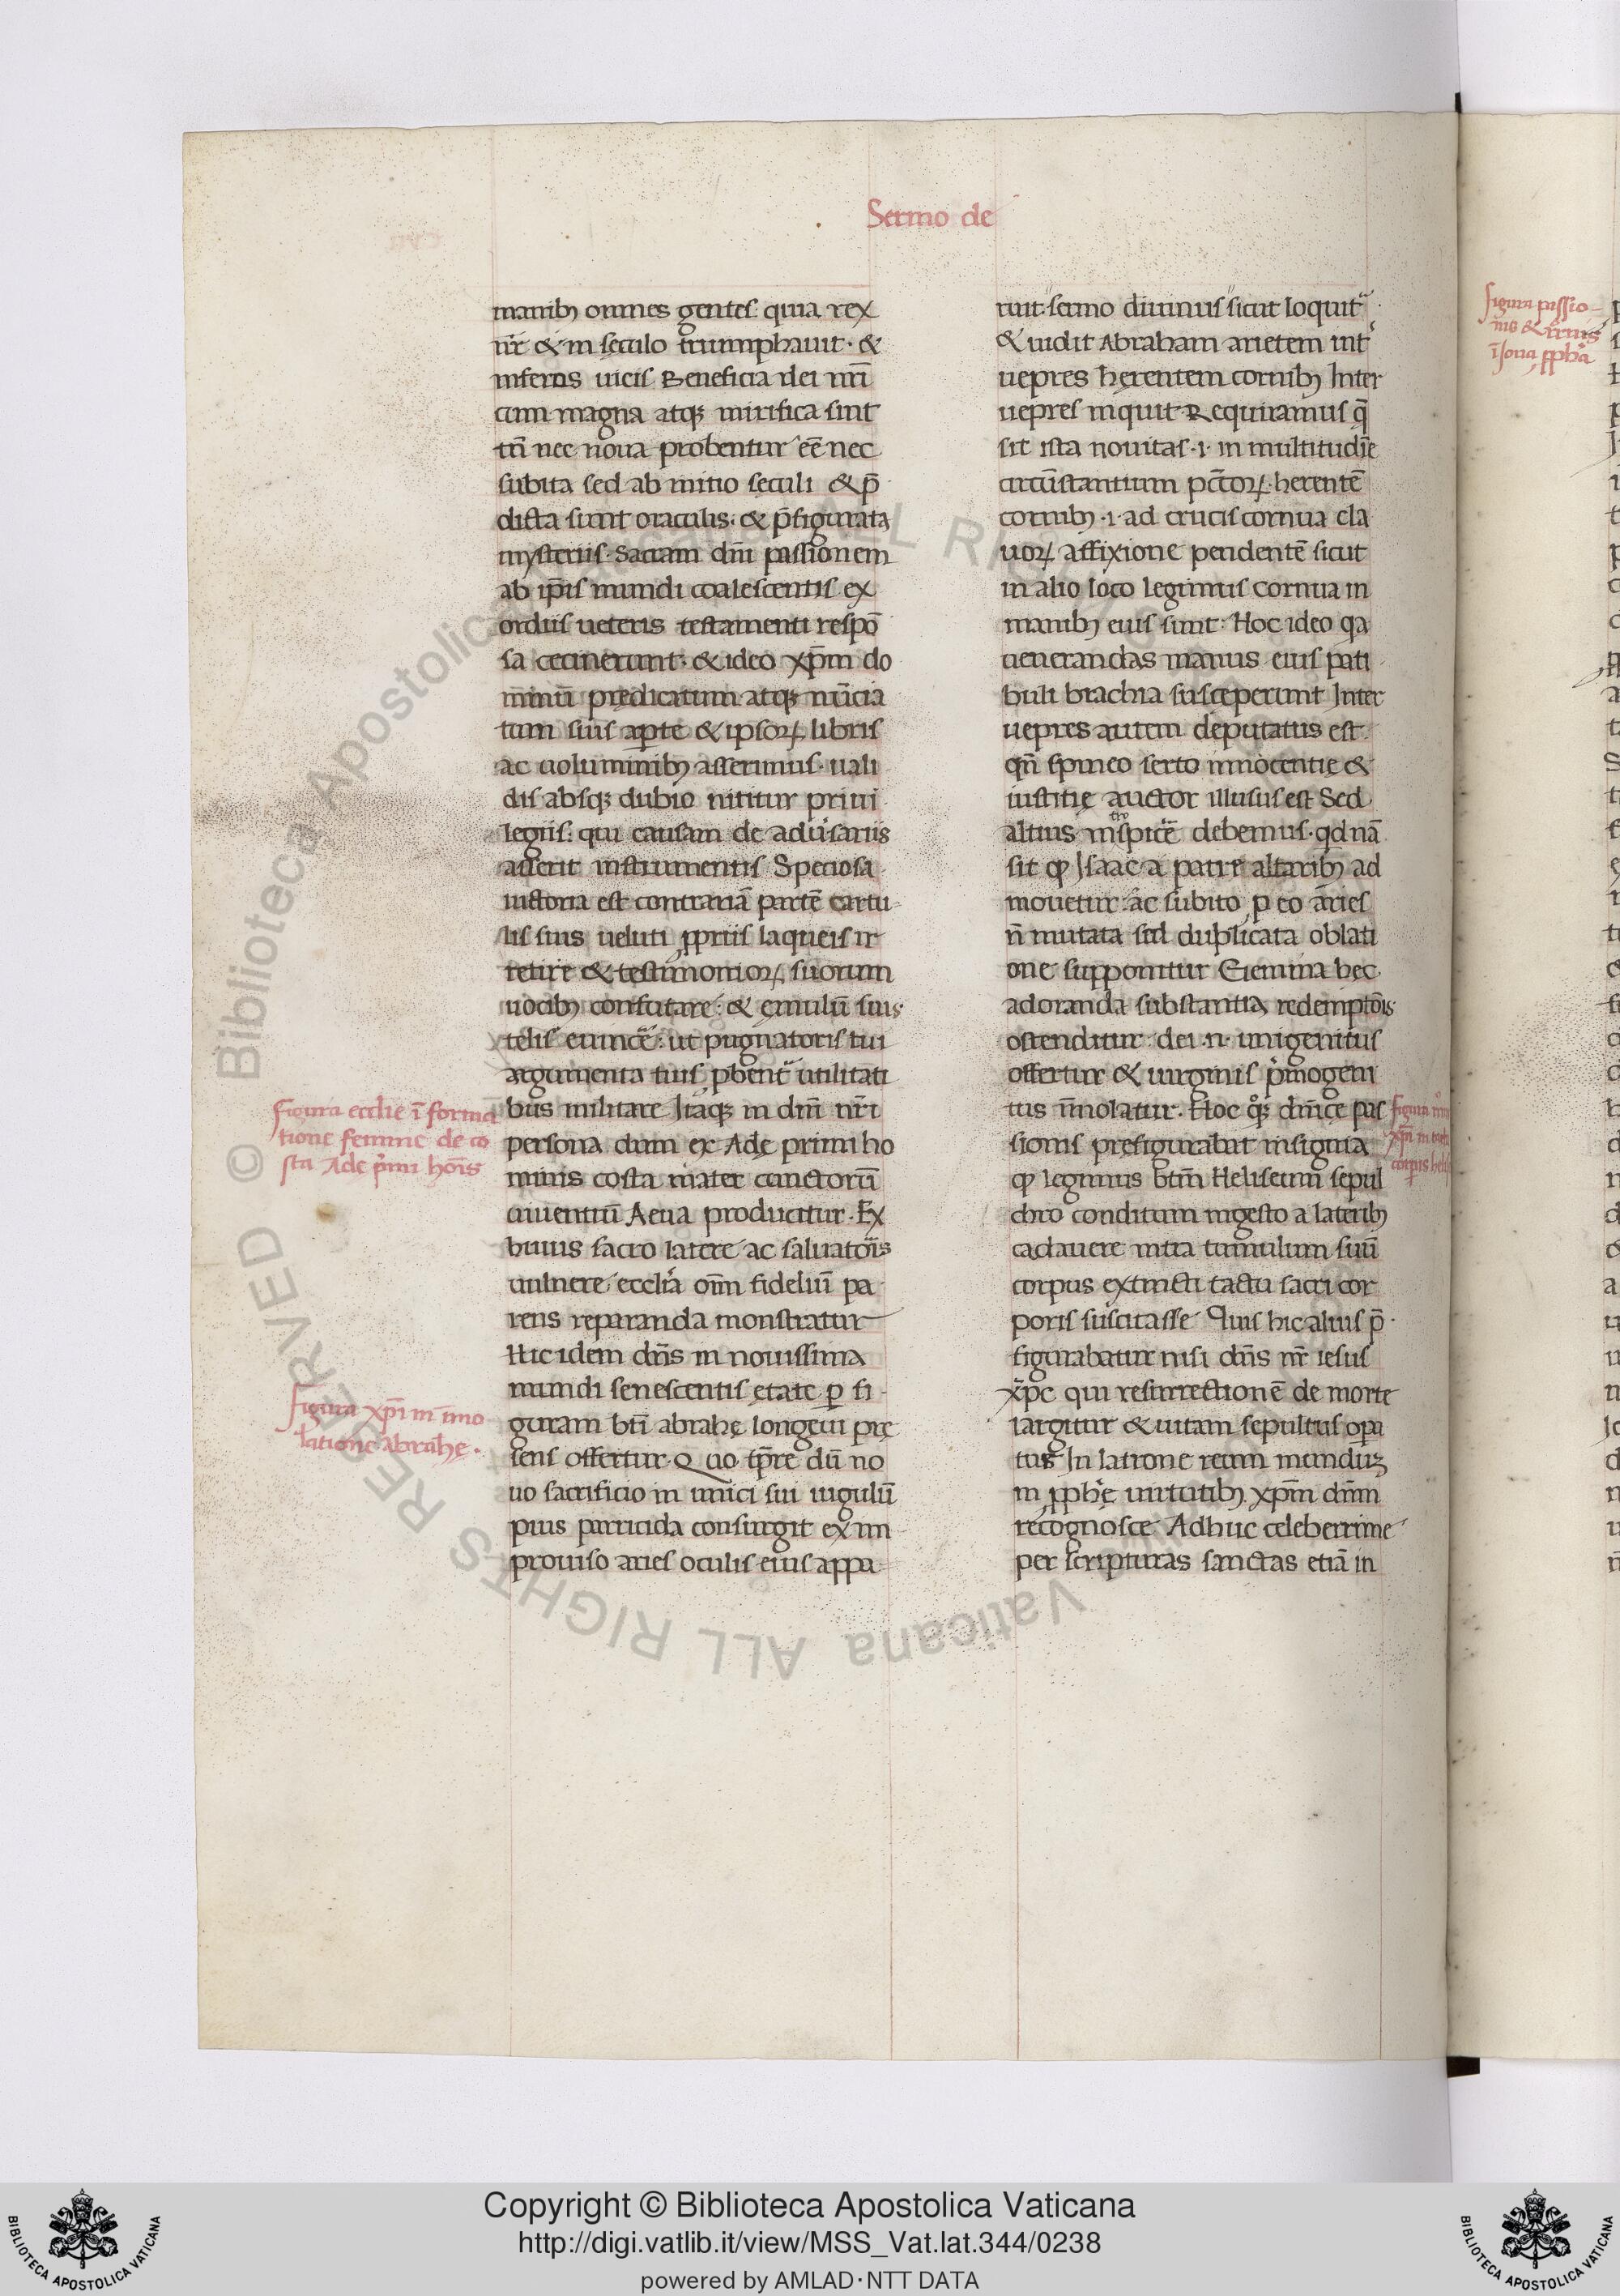 Sermo de
manibꝫ omnes gentes: quia rex
nr̄ & in sęculo triumphauit· &
inferos uicit Beneficia dei nr̄i
cum magna atqꝫ mirifica sint
tn̄ nec noua probentur eē nec
subita sed ab initio sęculi & p̄
dicta sunt oraculis· & p̄figurata
mysteriis· Sacram dn̄i passionem
ab ip̄is mundi coalescentis ex
ordiis ueteris testamenti respō
sa cecinerunt· & ideo xp̄m do
minū prędicatum atqꝫ nūcia
tum suis aperte & ipsoꝝ libris
ac uoluminibꝫ asserimus· uali
dis absqꝫ dubio nititur priui
legiis: qui causam de adu̓sariis
astruit instrumentis Speciosa
uictoria est contrariā partē cartu
lis suis ueluti ꝓpriis laqueis ir
retire & testimonioꝝ suorum
uocibꝫ confutare: & ęmulū suis
telis euincē: ut pugnatoris tui
argumenta tuis ꝓbent᷑ utilitati
bus militare Itaqꝫ in dn̄i nr̄i
persona dum ex Adę primi ho
minis costa mater cunctorū
uiuentiū Aeua producitur· Ex
huius sacro latere ac saluatoīs
uulnere ecclīa om̄ fideliū pa
rens reparanda monstratur
Hic idem dn̄s in nouissima
mundi senescentis ętate ꝑ fi
guram bt̄i abrahę longeui prę
sens offertur· Quo tp̄re dū no
uo sacrificio in unici sui iugulū
pius parricida consurgit ex im
prouiso aries oculis eius appa
Figura eccl̄ie ī forma
tione femine de co
sta Ade p̓mi hōis
Figura xp̄i in īmo
latione abrahe·
ruit· sermo diuinus sicut loquit᷑
& uidit Abraham arietem int̓
uepres hęrentem cornibꝫ Inter
uepres inquit Requiramus q̄
sit ista nouitas ·i· in multitudīe
circūstantium pctōꝝ· herentē
cornibꝫ ·i· ad crucis cornua cla
uoꝝ affixione pendentē sicut
in alio loco legimus Cornua in
manibꝫ eius sunt· Hoc ideo qa
uenerandas manus eius pati
buli brachia susceperunt Inter
uepres autem deputatus est
qn̄ spineo serto innocentię &
iustitię auctor illusus est Sed
altius inspicē debemus· qd nā
sit ꝙ Isaac a patre altaribꝫ ad
mouetur· ac subito ꝓ eo aries
n̄ mutata sed duplicata oblati
one supponitur Gemina hęc
adoranda substantia redemptōis
ostenditur· dei ·n· unigenitus
offertur & uirginis p̓mogeni
tus īmolatur· Hoc qͦqꝫ dn̄icę pas
sionis prefigurabat insignia
ꝙ legimus bt̄m Heliseum sepul
chro conditum ingesto a lateribꝫ
cadauere intra tumulum suū
corpus extincti tactu sacri cor
poris suscitasse Quis hic alius p̄
figurabatur nisi dn̄s nr̄ iesus
xp̄c qui resurrectionē de morte
largitur & uitam sepultus opa
tus In latrone reum mundūꝫ
in ꝓphę uirtutibꝫ xp̄m dn̄m
recognosce Adhuc celeberrime
per scripturas sanctas etiā in
figura passio
Copyright © Biblioteca Apostolica Vaticana
http://digi.vatlib.it/view/MSS_Vat.lat.344/0238
powered by AMLAD·NTT DATA
BIBLIOTECA APOSTOLICA VATICANA
BIBLIOTECA APOSTOLICA VATICANA
© Biblioteca Apostolica Vaticana ALL RIGHTS RESERVED